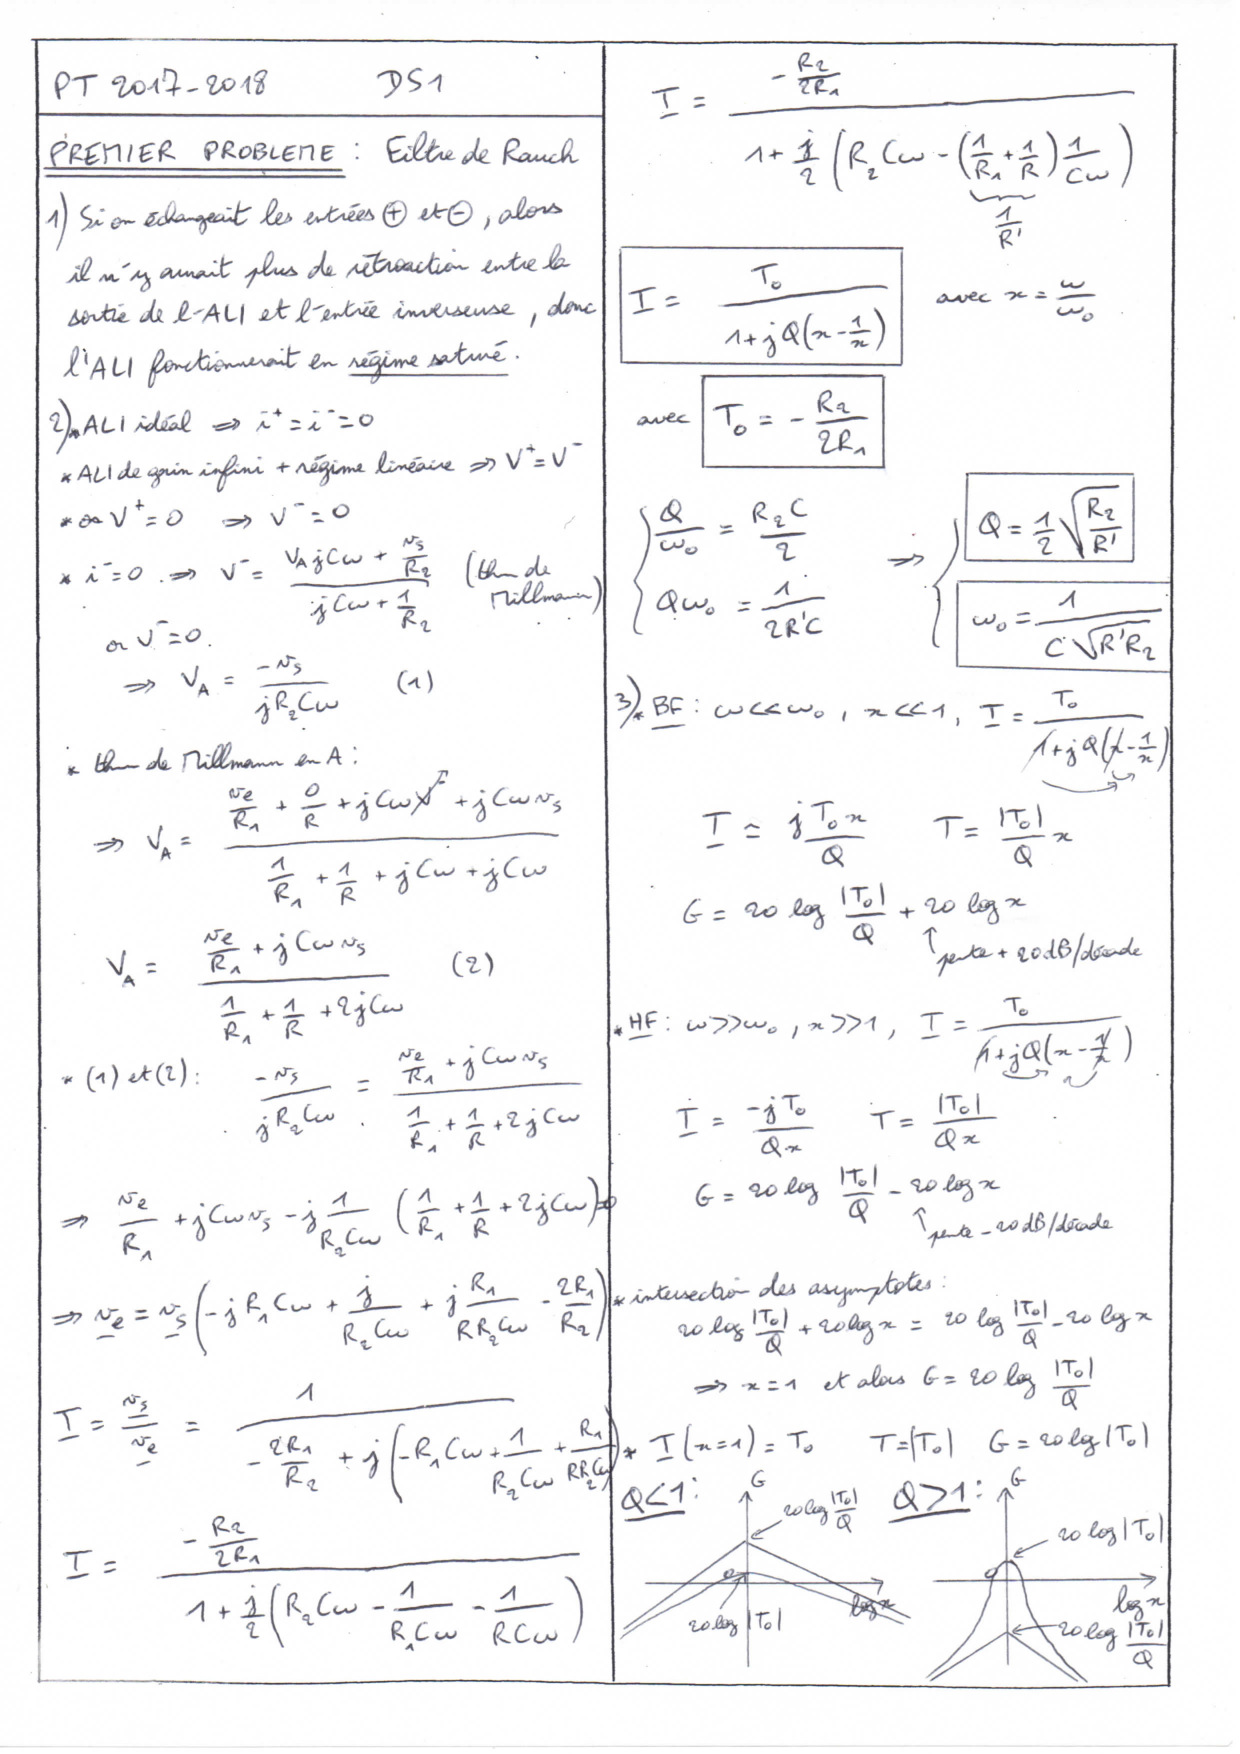 PT 2017-2018 DS1
PREMIER PROBLEME : Filtre de Rauch
1) Si on échangeait les entrées ⊕ et ⊖, alors
il n'y aurait plus de rétroaction entre la
sortie de l'ALI et l'entrée inverseuse, donc
l'ALI fonctionnerait en régime saturé.
2) * ALI idéal ⇒ i⁺ = i⁻ = 0
* ALI de gain infini + régime linéaire ⇒ V⁺ = V⁻
* or V⁺ = 0 ⇒ V⁻ = 0
* i⁻ = 0 ⇒ V⁻ = (V_A jCω + v_s/R_2) / (jCω + 1/R_2) (thm de Millmann)
or V⁻ = 0.
⇒ V_A = -v_s / (jR_2Cω) (1)
* thm de Millmann en A :
⇒ V_A = (v_e/R_1 + 0/R + jCωV⁻ + jCωv_s) / (1/R_1 + 1/R + jCω + jCω)
V_A = (v_e/R_1 + jCωv_s) / (1/R_1 + 1/R + 2jCω) (2)
* (1) et (2) : -v_s / (jR_2Cω) = (v_e/R_1 + jCωv_s) / (1/R_1 + 1/R + 2jCω)
⇒ v_e/R_1 + jCωv_s - j 1/(R_2Cω) (1/R_1 + 1/R + 2jCω) = 0
⇒ v_e = v_s (-jR_1Cω + j/(R_2Cω) + j R_1/(RR_2Cω) - 2R_1/R_2)
T = v_s/v_e = 1 / (-2R_1/R_2 + j(-R_1Cω + 1/(R_2Cω) + R_1/(RR_2Cω)))
T = (-R_2/2R_1) / (1 + j/2 (R_2Cω - 1/(R_1Cω) - 1/(RCω)))
T = (-R_2/2R_1) / (1 + j/2 (R_2Cω - (1/R_1 + 1/R) 1/(Cω)))
1/R'
T = T_0 / (1 + jQ(x - 1/x)) avec x = ω/ω_0
avec T_0 = -R_2/2R_1
Q/ω_0 = R_2C/2 ⇒ Q = 1/2 √(R_2/R')
Qω_0 = 1/(2R'C) ω_0 = 1/(C√(R'R_2))
3) * BF : ω<<ω_0, x<<1, T = T_0 / (1 + jQ(x - 1/x))
T ≃ jT_0x/Q T = |T_0|/Q x
G = 20 log |T_0|/Q + 20 log x
↑ pente + 20dB/décade
* HF : ω>>ω_0, x>>1, T = T_0 / (1 + jQ(x - 1/x))
T = -jT_0/(Qx) T = |T_0|/(Qx)
G = 20 log |T_0|/Q - 20 log x
↑ pente - 20dB/décade
* intersection des asymptotes :
20 log |T_0|/Q + 20 log x = 20 log |T_0|/Q - 20 log x
⇒ x = 1 et alors G = 20 log |T_0|/Q
* T(x=1) = T_0 T = |T_0| G = 20 log |T_0|
Q<1 : G 20 log |T_0|/Q
0
log x
20 log |T_0|
Q>1 : G
20 log |T_0|
0
log x
20 log |T_0|/Q